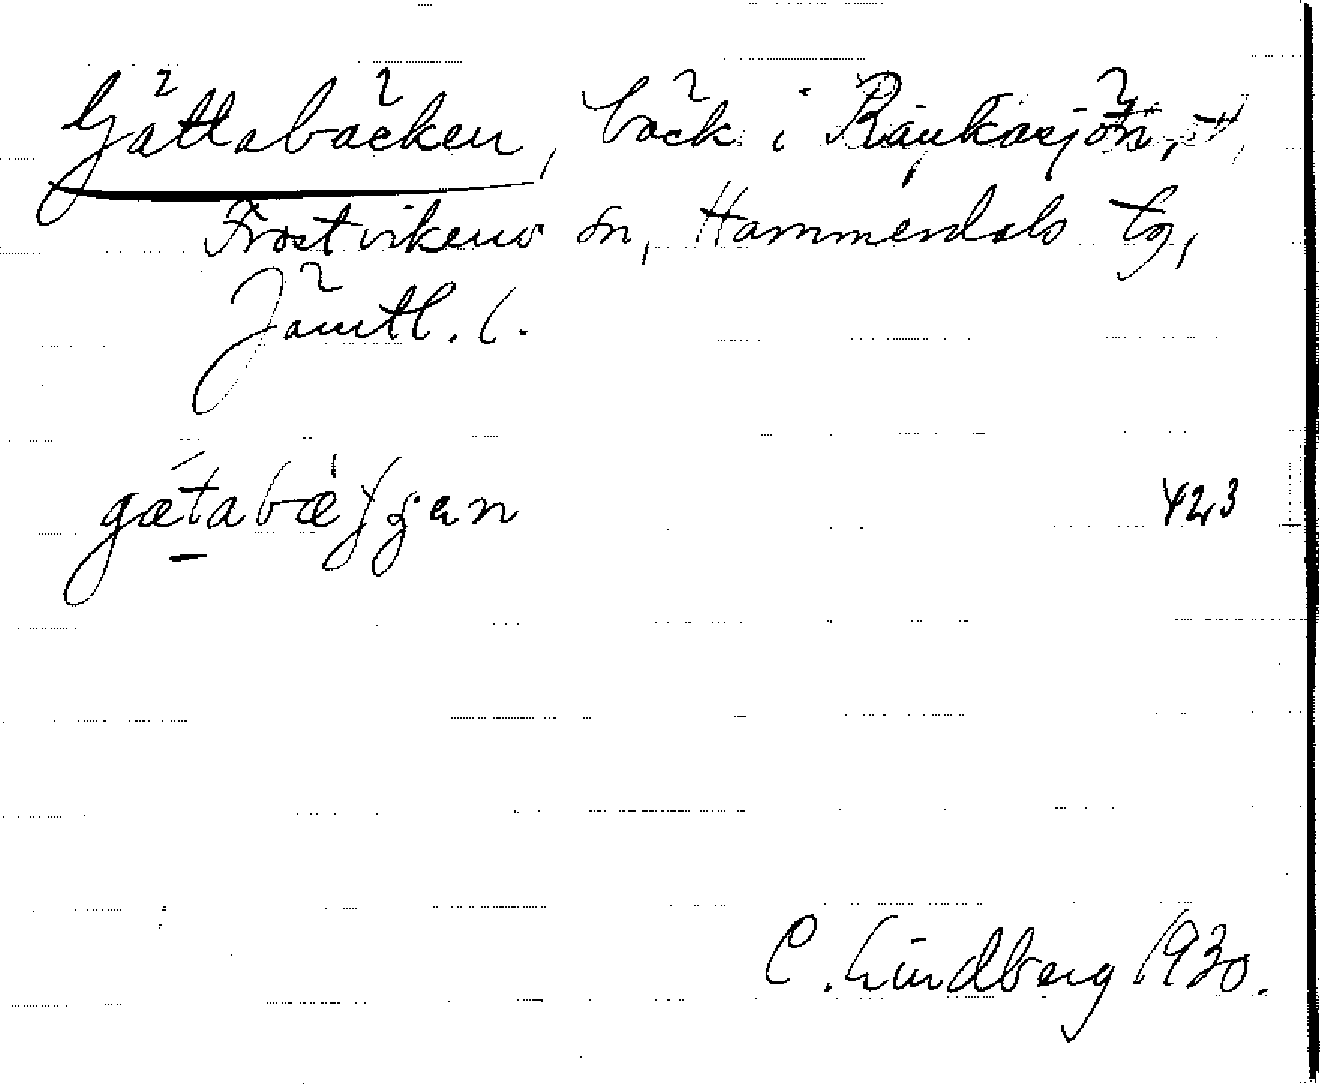 Gättabäcken, bäck i Raukasjön,
Frostvikens sn, Hammerdals tg,
Jämtl. l.
gætabæggen 423
C. Lindberg 1930.